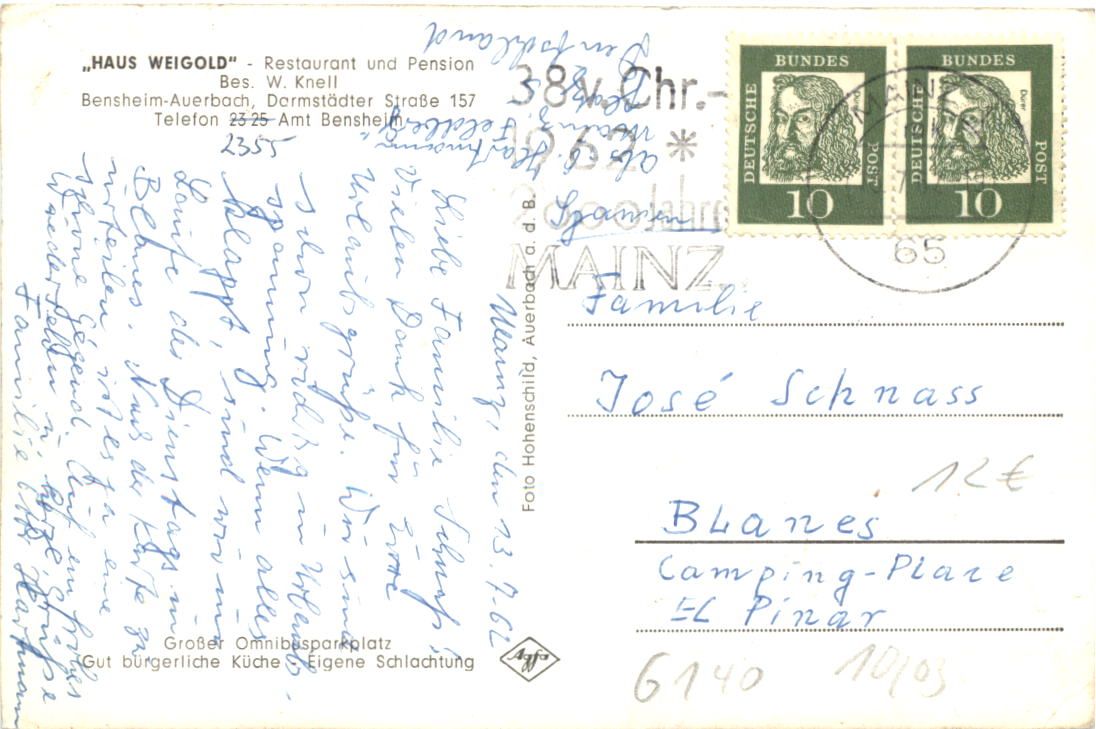 „HAUS WEIGOLD" - Restaurant und Pension
Bes. W. Knell
Bensheim-Auerbach, Darmstädter Straße 157
Telefon 23 25 Amt Bensheim
2355
Großer Omnibusparkplatz
Gut bürgerliche Küche - Eigene Schlachtung
Mainz, den 13.7.62
Liebe Familie Schnass!
Vielen Dank für Eure
Urlaubsgrüße. Wir sind
schon richtig in Urlaubs-
spannung. Wenn alles
klappt, sind wir im
Laufe des Dienstags in
Blanes. Nach der Karte zu
urteilen ist es ja eine
schöne Gegend. Auf ein frohes
Wiedersehn u. herzl. Grüße
Familie Hartmann
Abs. Hartmann
Mainz
Feldberg
Deutschland
Foto Hohenschild, Auerbach a. d. B.
Agfa
38 v. Chr.-
1962 *
2000 Jahre
MAINZ
DEUTSCHE BUNDES POST 10
DEUTSCHE BUNDES POST 10
Dürer
MAINZ
65
Familie
José Schnass
Blanes
Camping-Plaze
El Pinar
12 €
6140 10/03